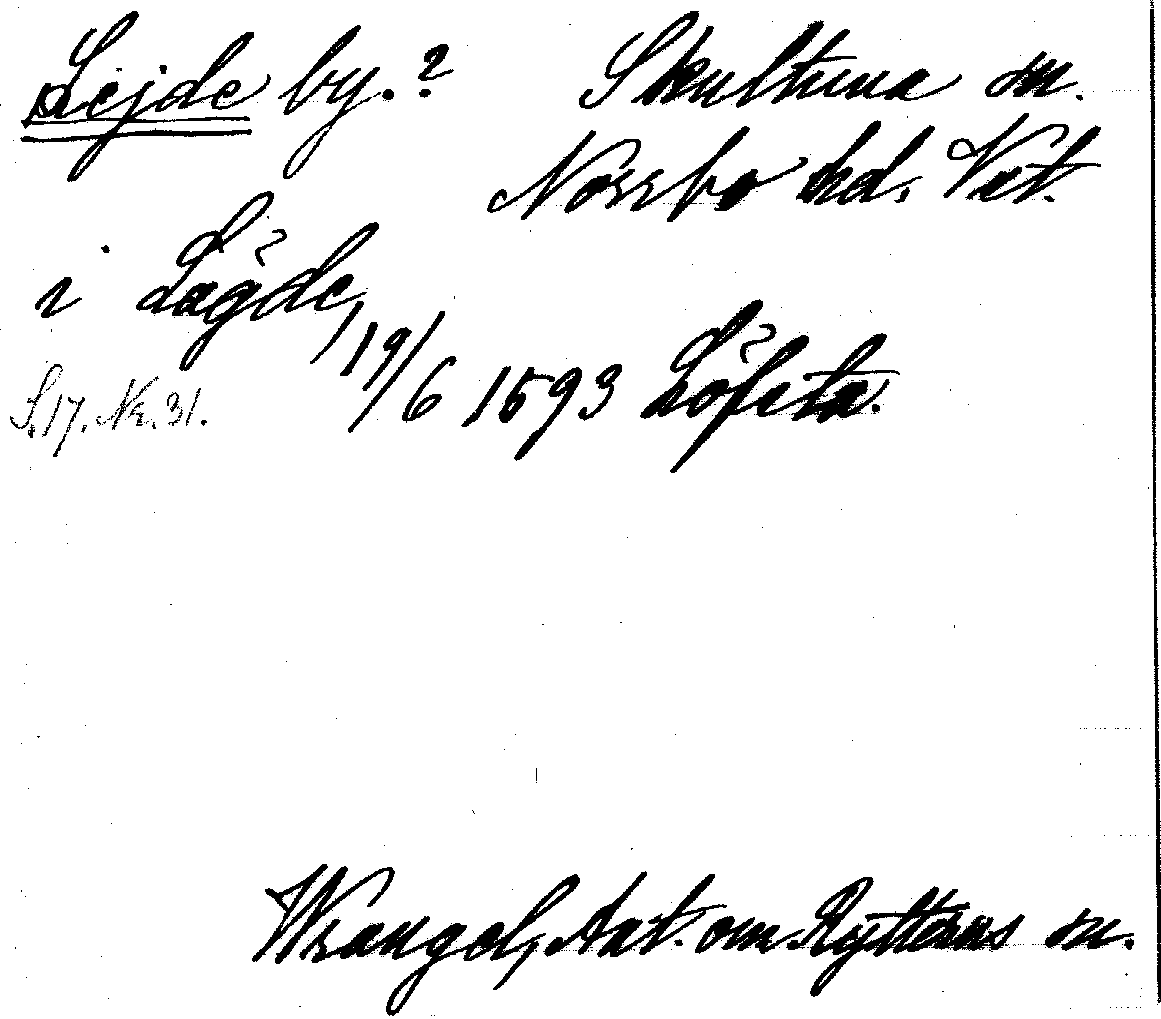 Lejde by.?
Skultuna sn.
Norrbo hd. Vst.
i Lägde, 19/6 1593 Löfsta.
S.17. Nr. 31.
Wrangel, Ant. om Rytterns sn.